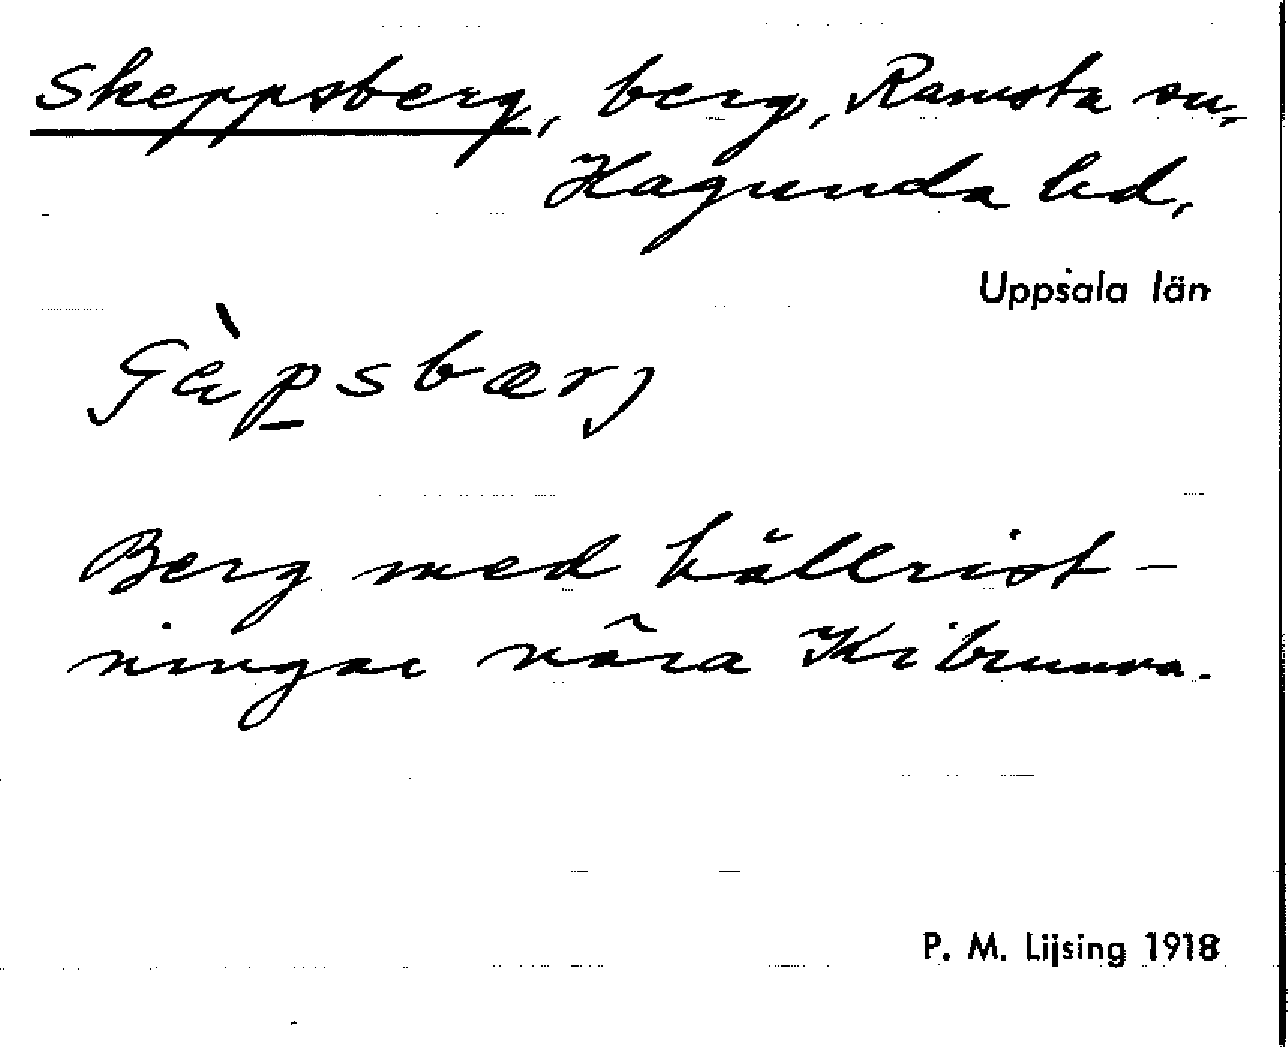 Skeppsberg, berg, Ramsta sn,
Hagunda hd,
Uppsala län
Berg med hällrist-
ningar nära Kibrunna.
P. M. Lijsing 1918